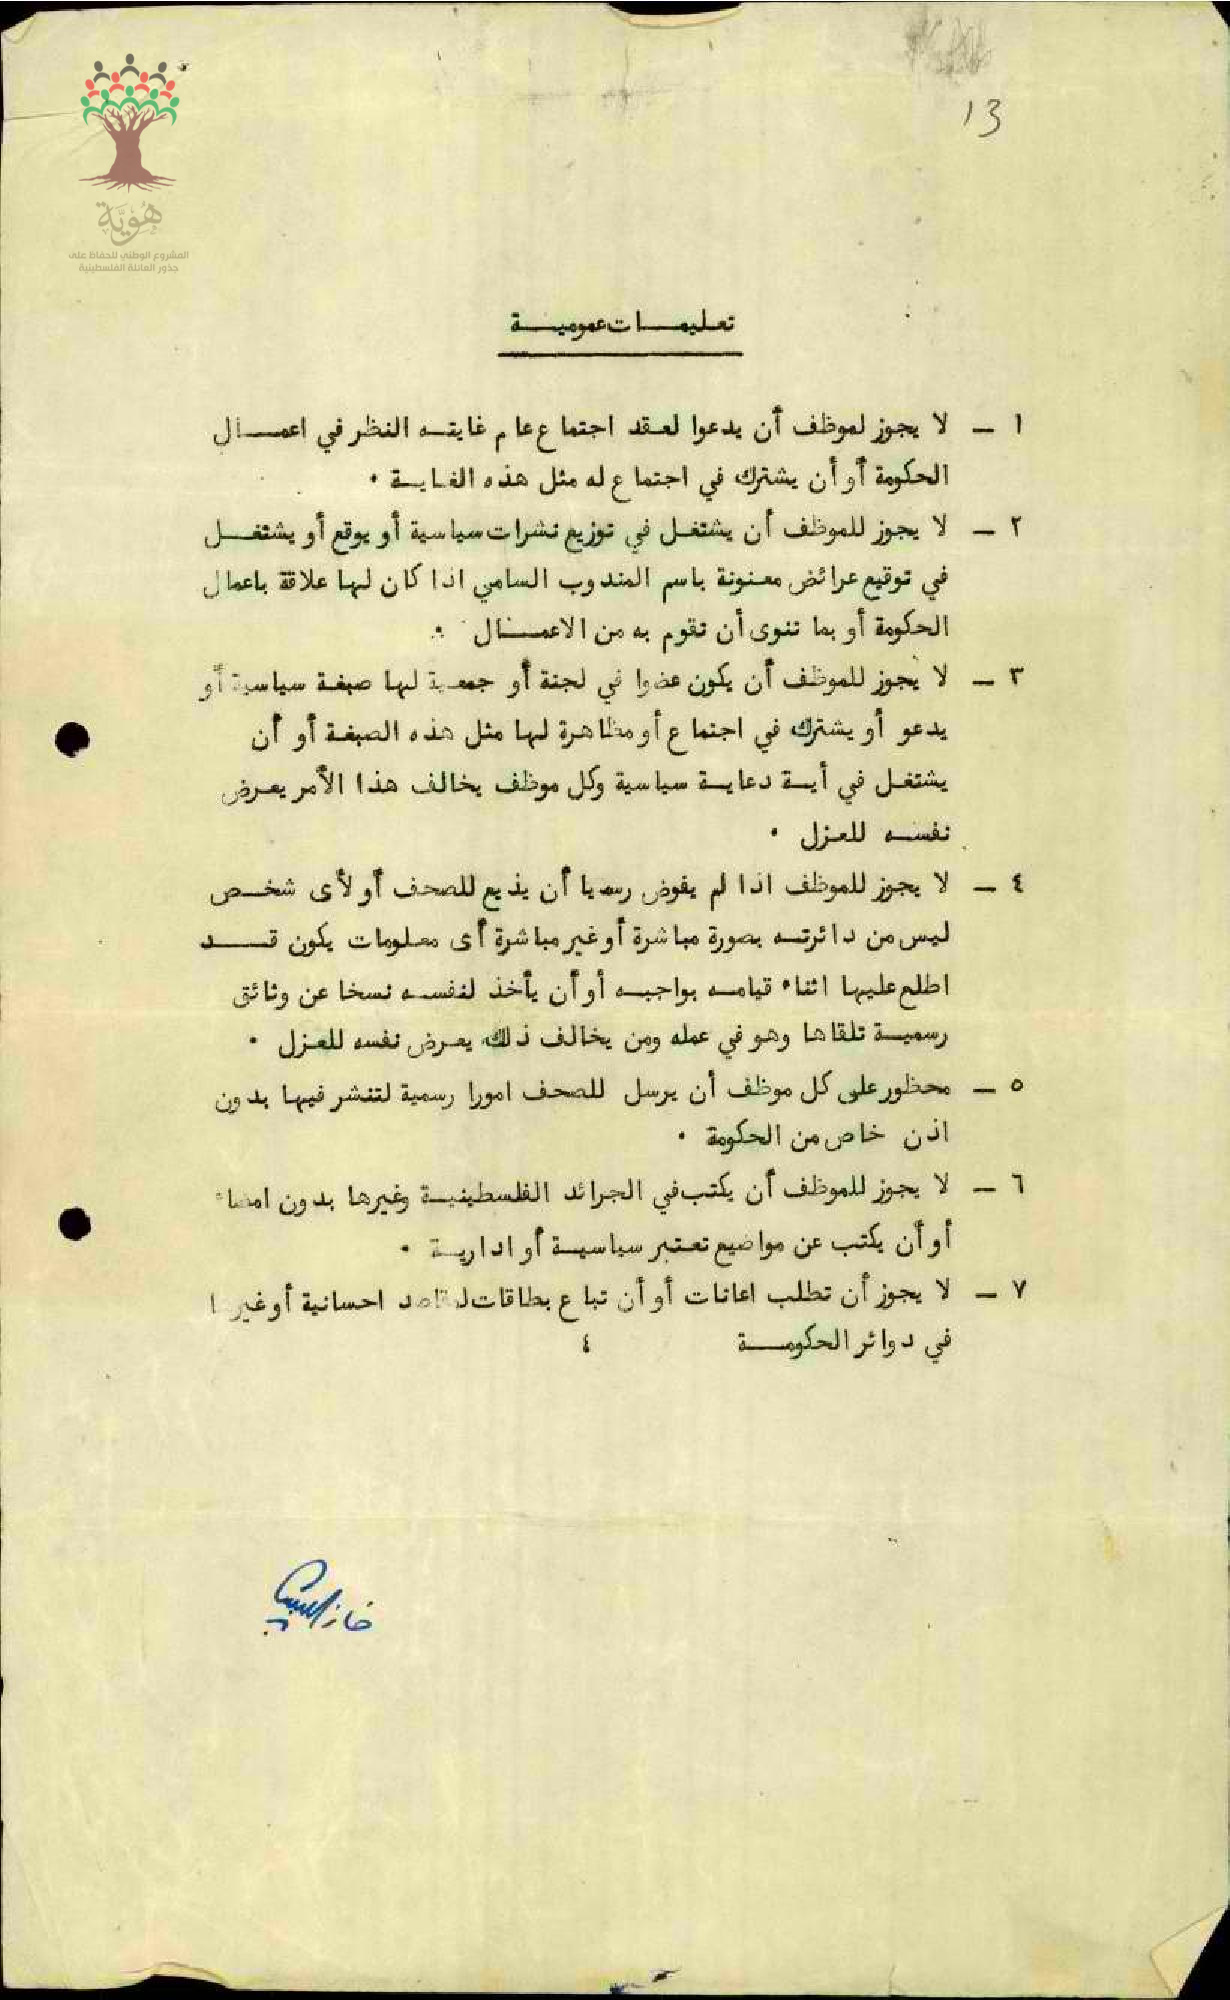 13
هُوِيَّة
المشروع الوطني للحفاظ على
جذور العائلة الفلسطينية
تعليمـــات عموميـــة
١ ــ لا يجوز لموظف أن يدعوا لعقد اجتماع عام غايته النظر في اعمـــال
الحكومة أو أن يشترك في اجتماع له مثل هذه الغايـة ٠
٢ ــ لا يجوز للموظف أن يشتغـل في توزيع نشرات سياسية أو يوقع أو يشتغـــل
في توقيع عرائض معنونة باسم المندوب السامي اذا كان لها علاقة باعمال
الحكومة أو بما تنوى أن تقوم به من الاعمـــال ٠
٣ ــ لا يجوز للموظف أن يكون عضوا في لجنة أو جمعية لها صبغـة سياسية أو
يدعو أو يشترك في اجتماع أو مظاهرة لها مثل هذه الصبغـة أو أن
يشتغـل في أيـة دعايـة سياسية وكل موظف يخالف هذا الأمر يعـرض
نفسـه للعـزل ٠
٤ ــ لا يجوز للموظف اذا لم يفوض رسميا أن يذيع للصحف أو لأى شخـص
ليس من دائرتـه بصورة مباشرة أو غير مباشرة أى معـلومات يكون قـــد
اطلع عليها اثناء قيامـه بواجبـه أو أن يأخذ لنفسـه نسخا عن وثائق
رسميـة تلقاها وهو في عمله ومن يخالف ذلك يعـرض نفسه للعـزل ٠
٥ ــ محظور على كل موظف أن يرسل للصحف امورا رسمية لتنشر فيها بدون
اذن خاص من الحكومة ٠
٦ ــ لا يجوز للموظف أن يكتب في الجرائد الفلسطينيـة وغيرها بدون امضاء
أو أن يكتب عن مواضيع تعـتبر سياسيـة أو اداريـة ٠
٧ ــ لا يجوز أن تطلب اعانات أو أن تباع بطاقات لمقاصد احسانية أو غيرها
في دوائر الحكومـــة ٤